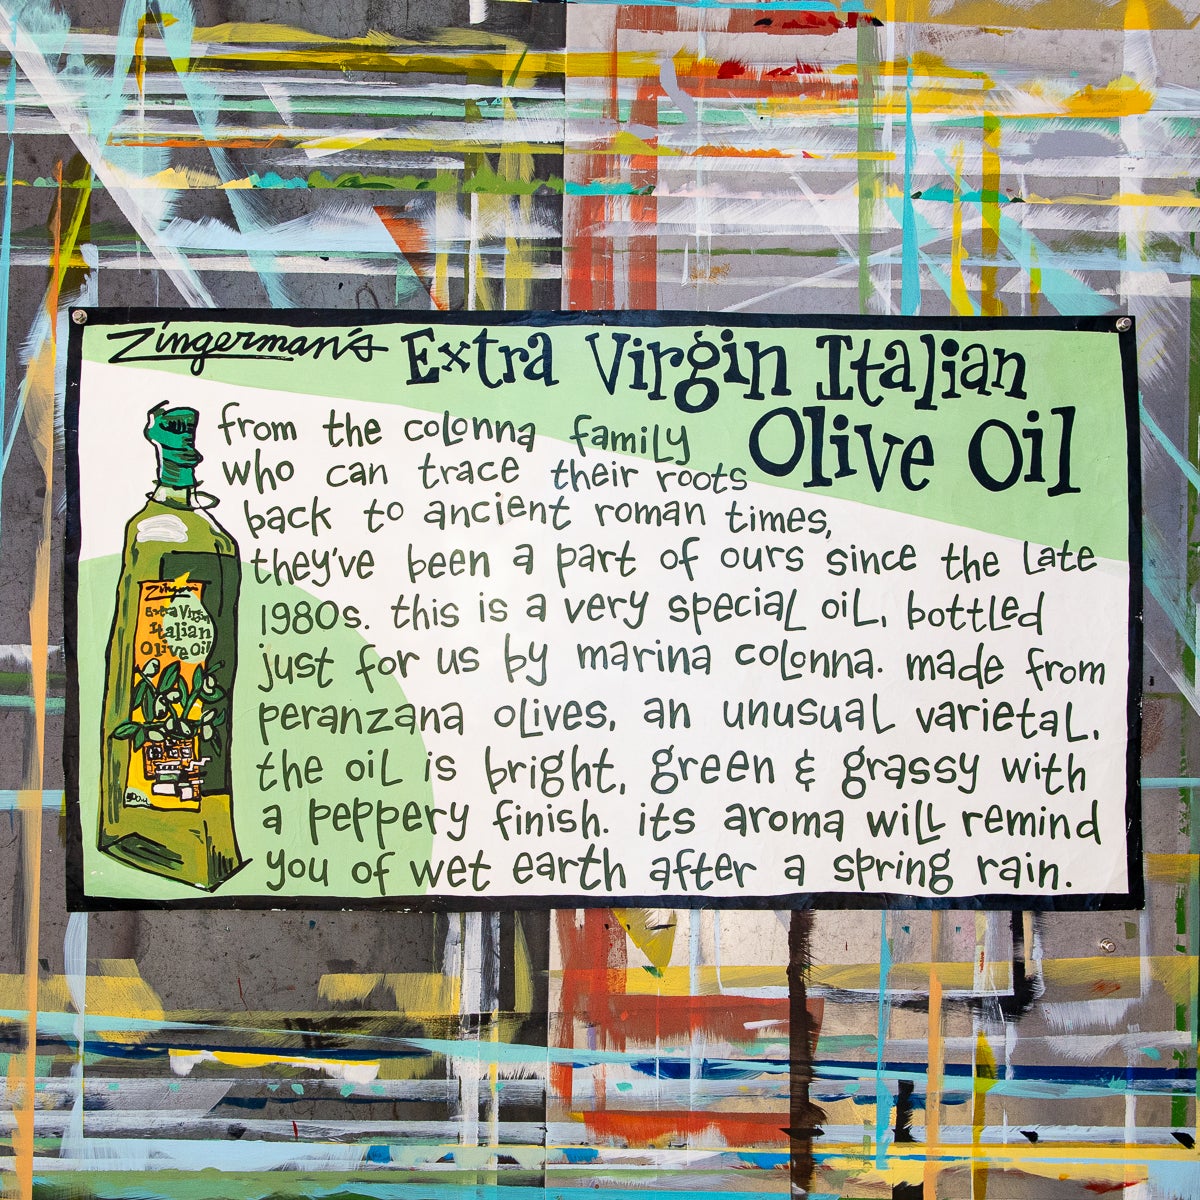 Zingerman's Extra Virgin Italian
Olive Oil
from the colonna family
who can trace their roots
back to ancient roman times,
they've been a part of ours since the late
1980s. this is a very special oil, bottled
just for us by marina colonna. made from
peranzana olives, an unusual varietal.
the oil is bright, green & grassy with
a peppery finish. its aroma will remind
you of wet earth after a spring rain.
Extra Virgin
Italian
Olive Oil